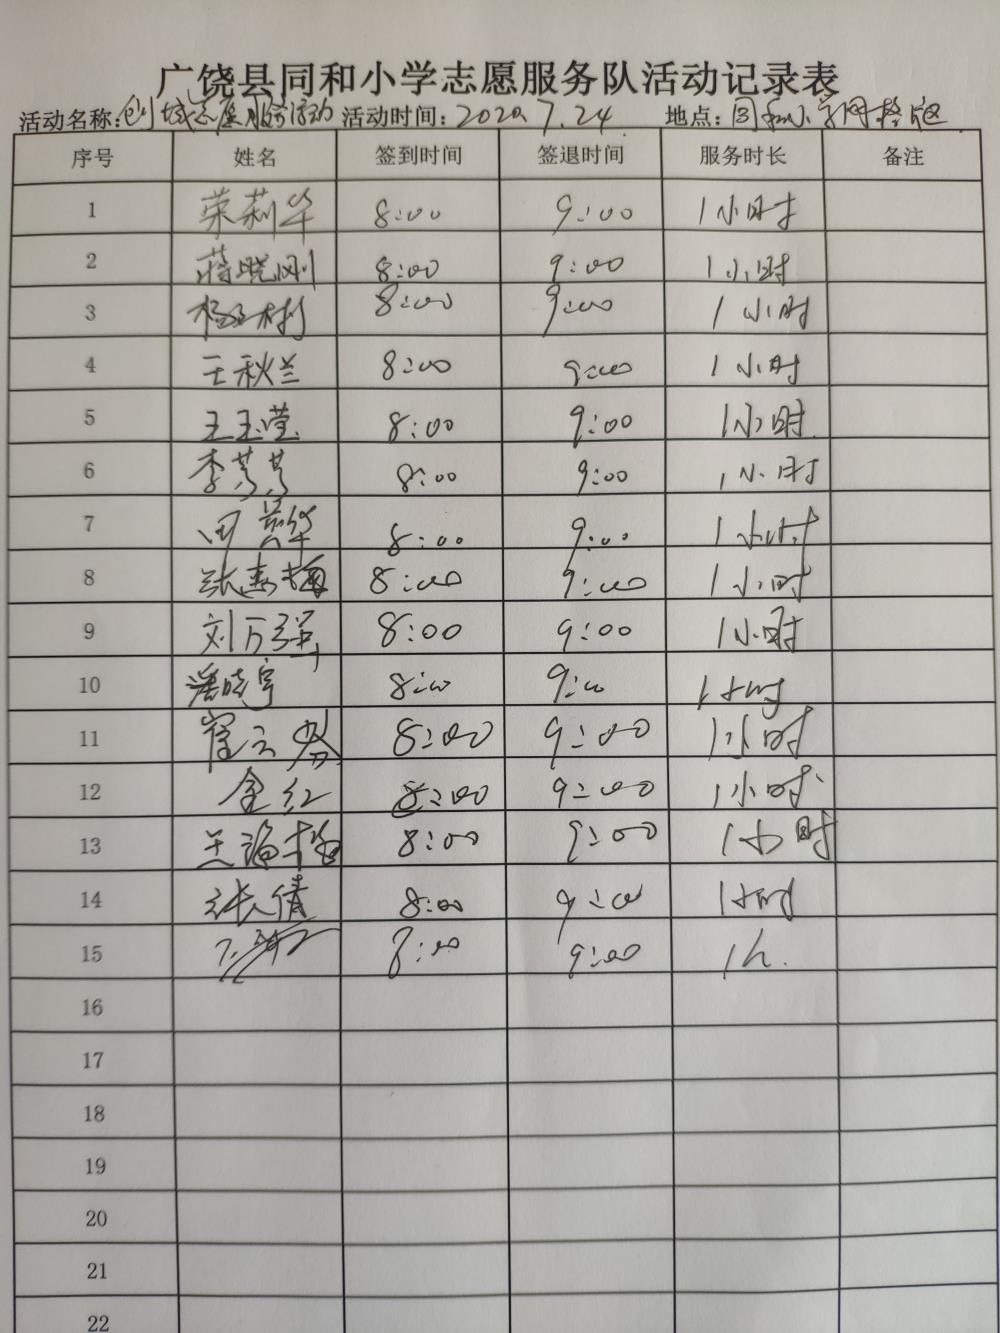 广饶县同和小学志愿服务队活动记录表
活动名称：创城志愿服务活动 活动时间：2020.7.24 地点：同和小学网格区
序号 姓名 签到时间 签退时间 服务时长 备注
1 荣莉华 8:00 9:00 1小时
2 蒋晓刚 8:00 9:00 1小时
3 8:00 9:00 1小时
4 王秋兰 8:00 9:00 1小时
5 王玉莹 8:00 9:00 1小时
6 李 8:00 9:00 1小时
7 8:00 9:00 1小时
8 张春梅 8:00 9:00 1小时
9 刘万强 8:00 9:00 1小时
10 潘晓宇 8:00 9:00 1小时
11 崔云 8:00 9:00 1小时
12 金红 8:00 9:00 1小时
13 8:00 9:00 1小时
14 张倩 8:00 9:00 1小时
15 8:00 9:00 1h.
16
17
18
19
20
21
22